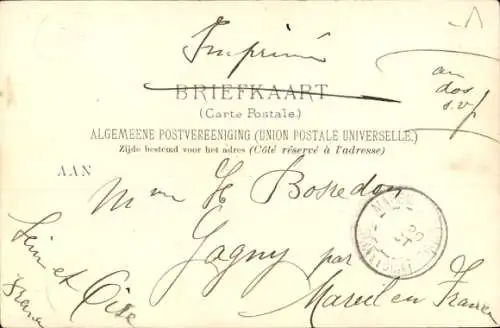 Imprimé
BRIEFKAART
(Carte Postale.)
au
dos
s.v.p.
ALGEMEENE POSTVEREENIGING (UNION POSTALE UNIVERSELLE.)
Zijde bestemd voor het adres (Côté réservé à l'adresse)
AAN
H Bossedon
Gagny par
Mareil en France
Seine et Oise
France